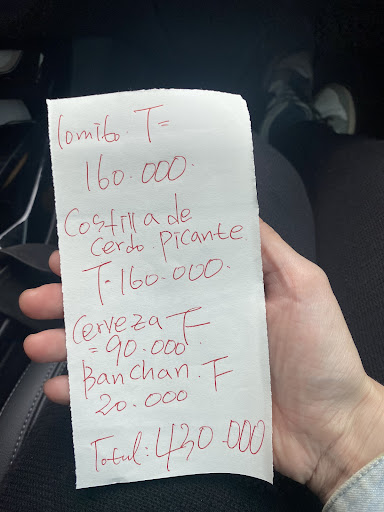 lomito. T=
160.000.
Costilla de
cerdo. picante.
T. 160.000.
Cerveza T
= 90.000
Banchan. T
20.000
Total: 430.000